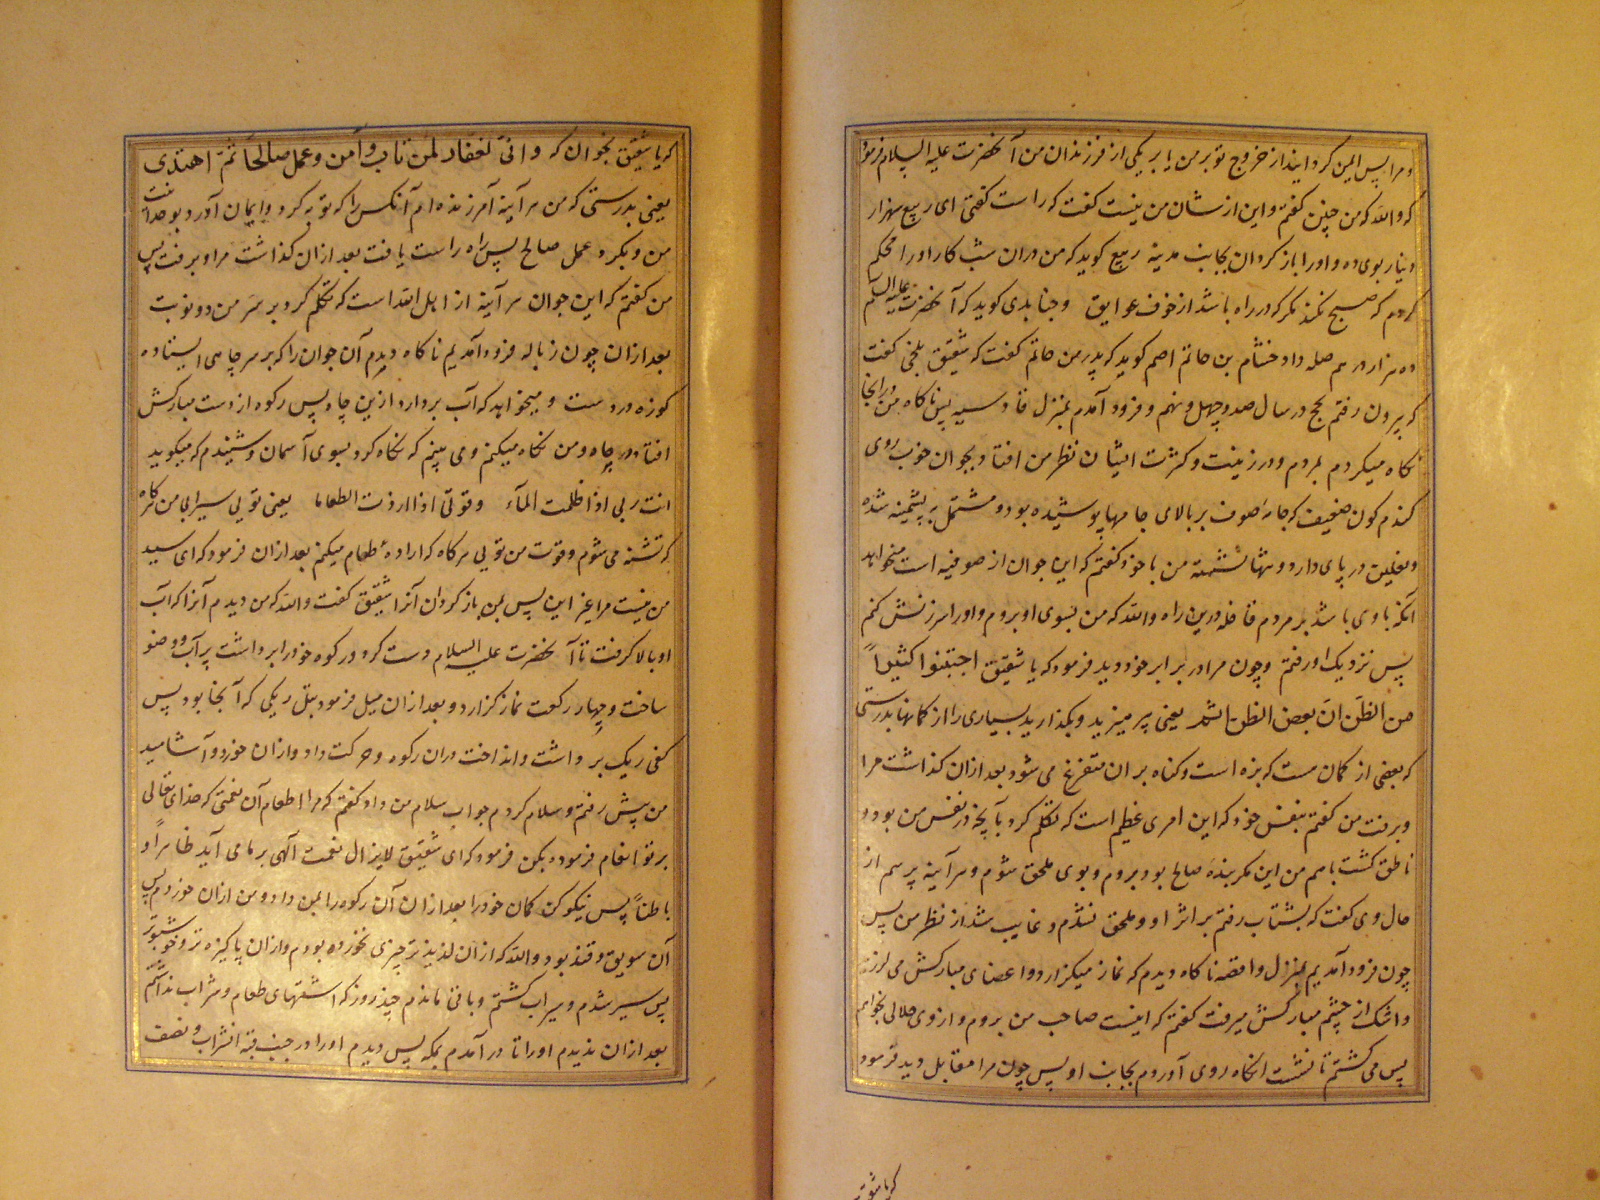 و مرا پس ایمن کرد ایند از خروج تو بر من یا بر یکی از فرزندان من آنحضرت علیه السلام فرمود
که والله که من چنین کفتم و این از شان من نیست کفت که راست کفتی ای ربیع سهزار
دینار بوی ده و او را باز کردان بجانب مدینه ربیع کوید که من دران شب کار او را محکم
کردم که صبح نکند مکر که در راه باشد از خوف عوایق و جنابدی کوید که آنحضرت علیه السلام
ده هزار درهم صله داد خشام بن حاتم اصم کوید که پدر من حاتم کفت که شقیق بلخی کفت
که بیرون رفتم بحج در سال صد و چهل و نهم و فرود آمدم بمنزل قادسیه پس ناکاه من در انجا
نکاه میکردم بمردم و در زینت و کثرت ایشان نظر من افتاد بجوان خوب روی
کندم کون ضعیف که جامهٔ صوف بر بالای جامها پوشیده بود و مشتمل به پشمینه شده
و نعلین در پای دارد و تنها نشسته من با خود کفتم که این جوان از صوفیه است میخواهد
آنکه باوی باشد بر مردم قافله درین راه والله که من بسوی او بروم و او را سرزنش کنم
پس نزدیک او رفتم و چون مرا در برابر خود دید فرمود که یا شقیق اجتنبوا کثیراً
من الظن ان بعض الظن اثم یعنی پرمیزید و بکذارید بسیاری را از کمانها بدرستی
که بعضی از کمان هست که بزه است و کناه بران متفرغ می شود بعد ازان کذاشت مرا
و برفت من کفتم بنفس خود که این امری عظیم است که تکلم کرد بآنچه در نفس من بود و
ناطق کشت باسم من این مکر بندهٔ صالح بود بروم و بوی ملحق شوم و هرآینه پرسم از
حال وی کفت که بشتاب رفتم بر اثر او و ملحق نشدم و غایب شد از نظر من پس
چون فرود آمدیم بمنزل واقصه ناکاه دیدم که نماز میکزارد و اعضای مبارکش می لرزد
و اشک از چشم مبارکش میرفت کفتم که اینست صاحب من بروم و از وی حلالی بخواهم
پس می کشتم تا نشست انکاه روی آوردم بجانب او پس چون مرا مقابل دید فرمود
که یا شقیق
که یا شقیق بخوان که و انی لغفار لمن تاب و آمن و عمل صالحا ثم اهتدی
یعنی بدرستی که من هرآینه آمرزنده ام آنکس را که توبه کرد و ایمان آورد بوحدانیت
من و بکرد عمل صالح پس راه راست یافت بعد ازان کذاشت مرا و برفت پس
من کفتم که این جوان هرآینه از ابدال است که تکلم کرد بر سر من دو نوبت
بعد ازان چون زباله فرود آمدیم ناکاه دیدم آن جوان را که بر سر چاهی ایستاده
کوزه در دست و میخواهد که آب بردارد ازین چاه پس رکوه از دست مبارکش
افتاد در چاه و من نکاه میکنم و می بینم که نکاه کرد بسوی آسمان و شنیدم که میکوید
انت ربی اذا ظمئت الماء و قوتی اذا اردت الطعاما یعنی تویی سیرابی من کاه
که تشنه می شوم و قوت من تویی هرکاه که ارادهٔ طعام میکنم بعد ازان فرمود که ای سید
من نیست مرا غیر این پس بمن باز کردان آنرا شقیق کفت والله که من دیدم آنرا که آب
او بالا کرفت تا آنحضرت علیه السلام دست کرد و رکوه خود را برداشت پر آب و وضو
ساخت و چهار رکعت نماز کزارد و بعد ازان میل فرمود بتل ریکی که آنجا بود پس
کفی ریک برداشت و انداخت دران رکوه و حرکت داد و ازان خورد و آشامید
من پیش رفتم و سلام کردم جواب سلام من داد کفتم که مرا اطعام آن نعمتی که خدای تعالی
بر تو انعام فرموده بکن فرمود که ای شقیق لایزال نعمت آلهی بر ما می آید ظاهراً و
باطناً پس نیکو کن کمان خود را بعد ازان آن رکوه را بمن داد و من ازان خوردم پس
آن سویق و قند بود والله که ازان لذیذتر چیزی نخورده بودم و ازان پاکیزه تر و خوشبوتر
پس سیر شدم و سیراب کشتم و باقی ماندم چند روز که اشتهای طعام و شراب نداشتم
بعد ازان ندیدم او را تا در آمدم بمکه پس دیدم او را در جنب قبهٔ الشراب و نصف